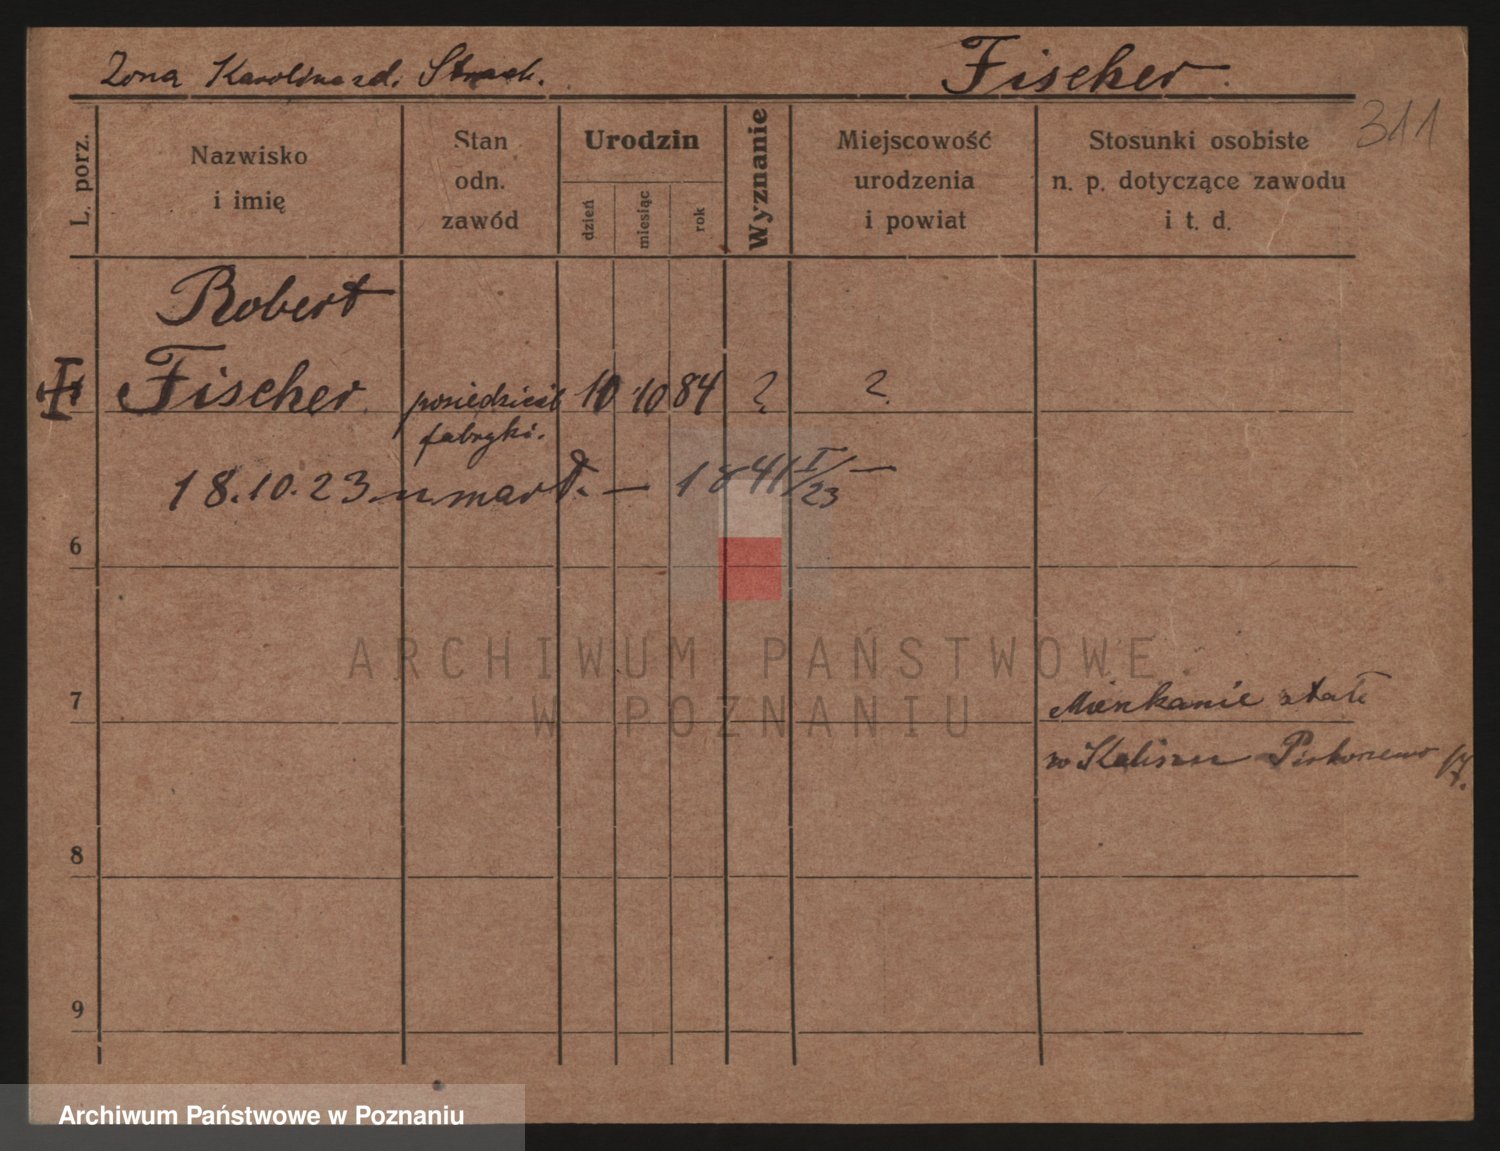 Żona Karolina zd. Strach.
Fischer
311
L. porz.
Nazwisko
i imię
Stan
odn.
zawód
Urodzin
dzień
miesiąc
rok
Wyznanie
Miejscowość
urodzenia
i powiat
Stosunki osobiste
n. p. dotyczące zawodu
i t. d.
Robert
Fischer posiedziciel 10 10 84 ? ?
fabryki.
18.10.23 umarł. — 1841 I/23 —
6
ARCHIWUM PAŃSTWOWE
W POZNANIU
7
Mieszkanie stałe
w Kaliszu Piskorzewo
8
9
Archiwum Państwowe w Poznaniu